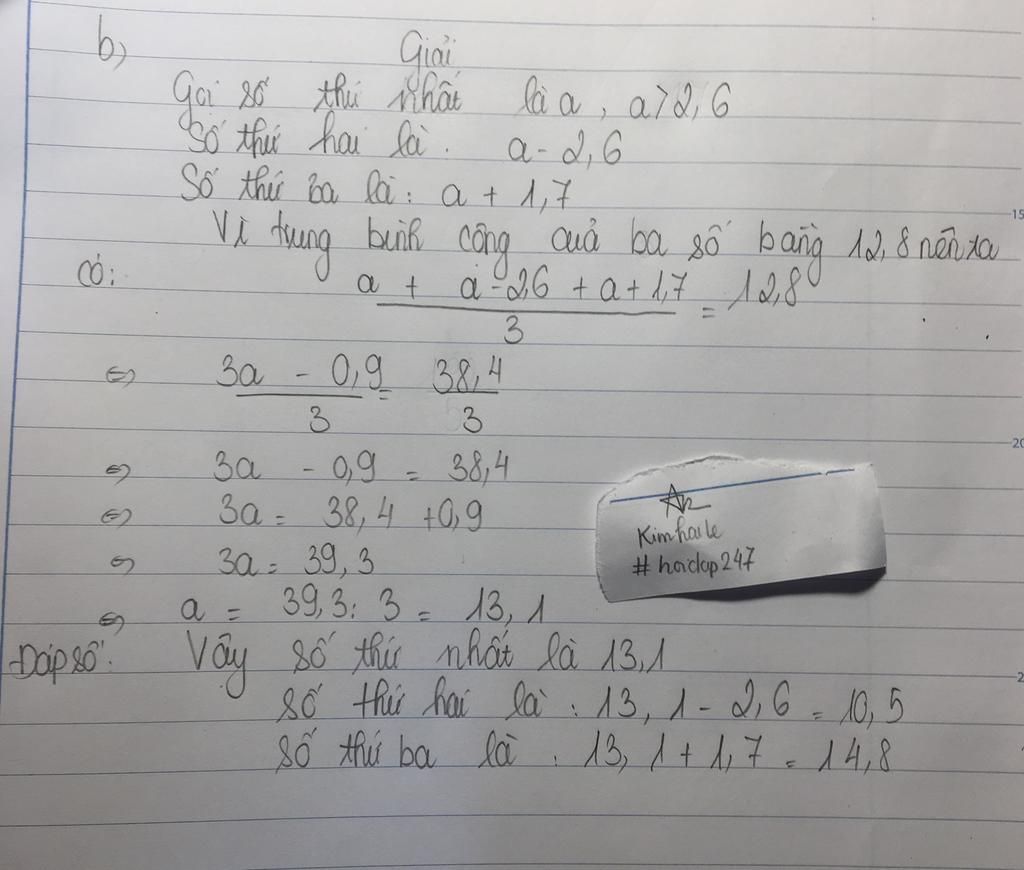 b) Giải
Gọi số thứ nhất là a, a > 2,6
Số thứ hai là: a - 2,6
Số thứ ba là: a + 1,7
Vì trung bình cộng cuả ba số bằng 12,8 nên ta
có:
a + a - 2,6 + a + 1,7 = 12,8
3
⇔ 3a - 0,9 = 38,4
3 3
⇔ 3a - 0,9 = 38,4
⇔ 3a = 38,4 + 0,9
⇔ 3a = 39,3
⇔ a = 39,3 : 3 = 13,1
Đáp số: Vậy số thứ nhất là 13,1
số thứ hai là : 13,1 - 2,6 = 10,5
số thứ ba là : 13,1 + 1,7 = 14,8
Kimhaile
#hoidap247
15
20
2